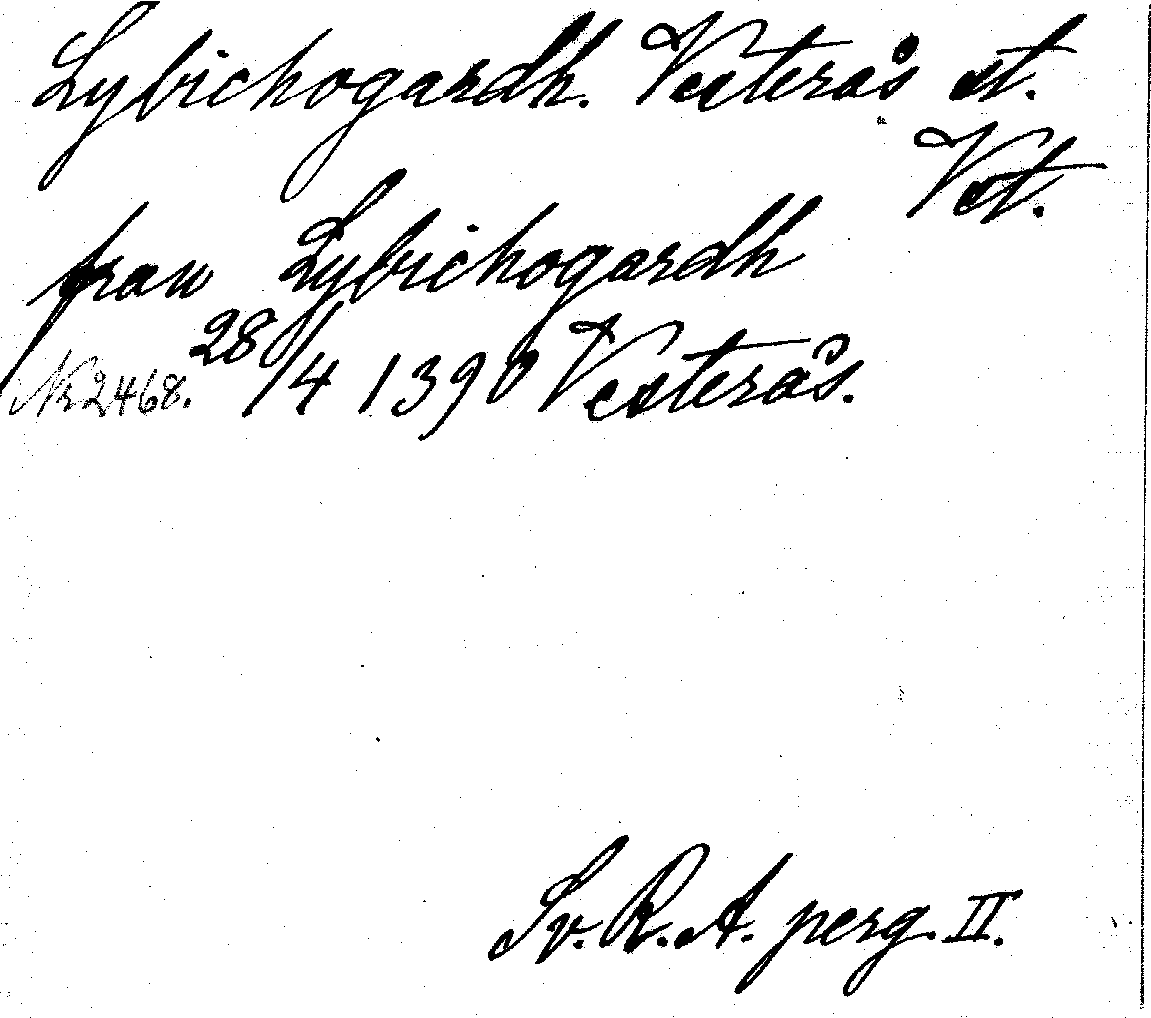 Lybichogardh. Vesterås st.
Vst.
fran Lybichogardh
Nr 2468. 28/4 1390 Vesterås.
Sv. R. A. perg. II.